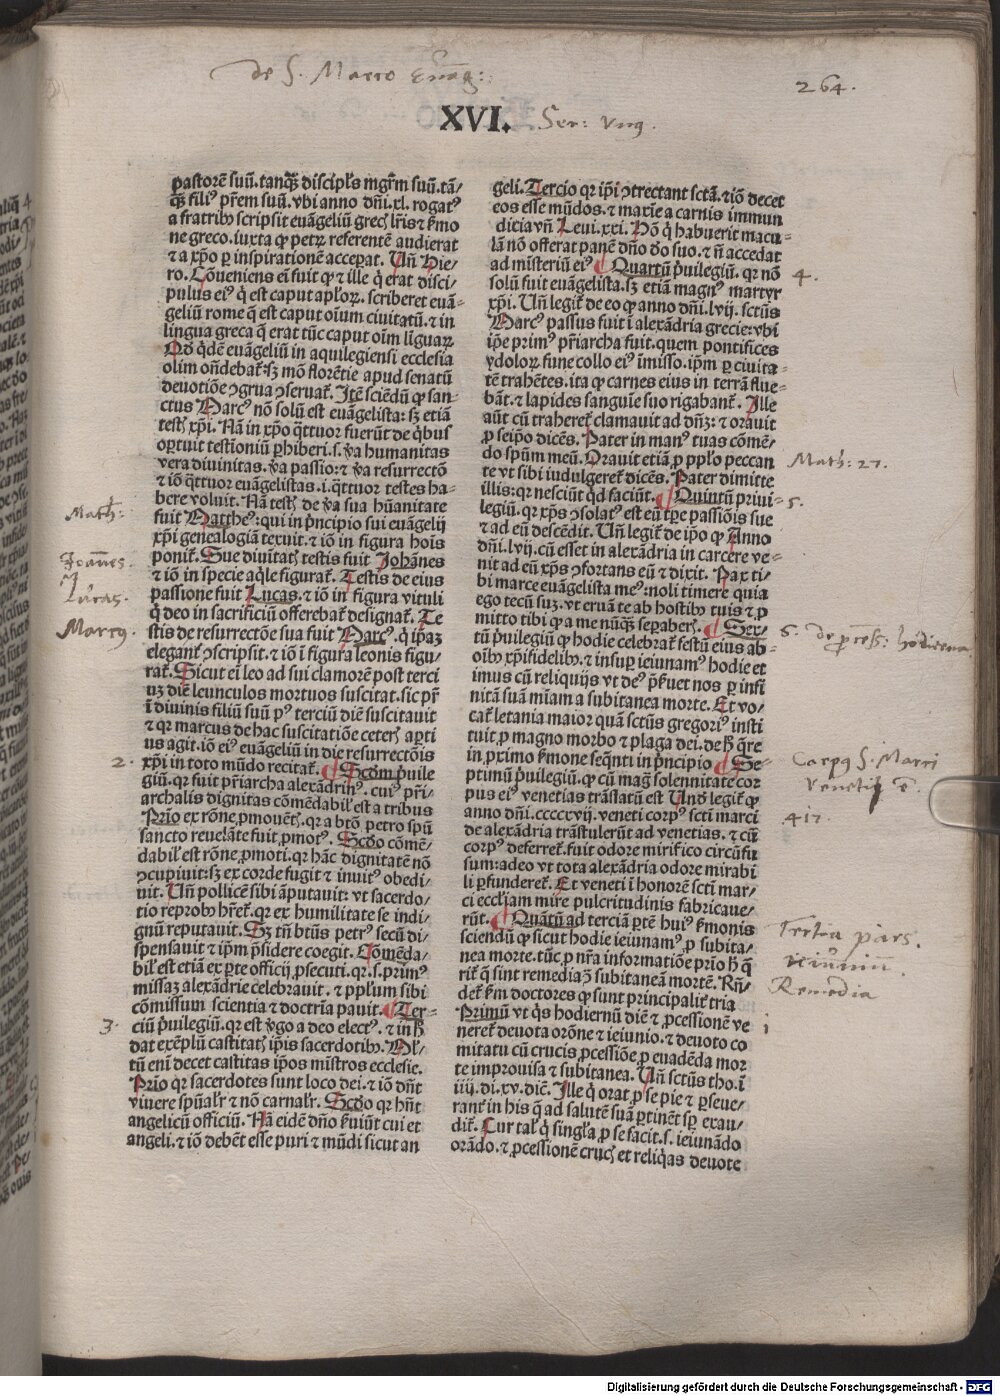 de S. Marco Evāg:
264.
XVI. Ser: Vnꝰ.
pastorē suū. tanqᷓꝫ discipl̄s mgr̄m suū. tā/
qᷓꝫ filiꝰ pr̄em suū. vbi anno dn̄i .xl. rogatꝰ
a fratribꝰ scripsit euāgeliū grecꝭ lr̄is ⁊ ẜmo
ne greco. iuxta qꝙ petrꝫ referentē audierat
⁊ a xp̄o ꝑ inspirationē acceꝑat. Un̄ Hie/
ro. Cōueniens eī fuit ꝙ ⁊ ille q̇ erat disci/
pulus eiꝰ q̇ est caput apl̄oꝝ. scriberet euā/
geliū rome q̄ est caput oīum ciuitatū. ⁊ in
lingua greca q̄ erat tūc caput oīm līguaꝝ
Qd̓ q̇dē euāgeliū in aquilegiensi ecclesia
olim on̄debat᷑. sꝫ mō florētie apud senatū
deuotiōe ꝯgrua ꝯseruat᷑. Itē sciēdū ꝙ san/
ctus Marcꝰ nō solū est euāgelista: sꝫ etiā
testꝭ xp̄i. Nā in xp̄o q̇ttuor fuerūt de q̇bus
oꝑtuit testioniū ꝑhiberi .s. ꝟa humanitas
vera diuinitas. ꝟa passio: ⁊ ꝟa resurrectō
⁊ iō q̇ttuor euangelistas .i. q̇ttuor testes ha/
bere voluit. Nā testꝭ de ꝟa sua hūanitate
Math:
fuit Mattheꝰ: qui in pͥncipio sui euāgelij
xp̄i genealogiām texuit. ⁊ iō in figura hoīs
Joānes.
ponit᷑. Sue diuītatꝭ testis fuit Johānes
⁊ iō in specie aq̇le figurat᷑. Testis de eius
Lucas.
passione fuit Lucas. ⁊ iō in figura vituli
q̇ deo in sacrificiū offerebat᷑ designat᷑. Te
Marcꝰ.
stis de resurrectōe sua fuit Marcꝰ. q̇ ip̄aꝫ
elegant᷑ ꝯscripsit. ⁊ iō ī figura leonis figu/
rat᷑. Sicut eī leo ad sui clamorē post terci
uꝫ diē leunculos mortuos suscitat. sic pr̄
ī diuinis filiū suū pꝰ terciū diē suscitauit
⁊ qꝛ marcus de hac suscitatiōe ceterꝭ aꝑti
us agit. iō eiꝰ euāgeliū in die resurrectōis
2. xp̄i in toto mūdo recitat᷑. ¶ Scd̓m pͥuile
giū. qꝛ fuit pr̄iarcha alexādrinꝰ. cuiꝰ pr̄i/
archalis dignitas cōmēdabil̓ est a tribus
Prīo ex rōne ꝓmouētꝭ. qꝛ a btō petro spū
sancto reuelāte fuit ꝓmotꝰ. Scd̓o cōmē/
dabil̓ est rōne ꝓmoti. qꝛ hāc dignitatē nō
ꝯcupiuit: sꝫ ex corde fugit ⁊ inuitꝰ obedi/
uit. Un̄ pollicē sibi āputauit: vt sacerdo/
tio reprobꝰ hr̄et᷑. qꝛ ex humilitate se indi/
gnū reputauit. Sꝫ tn̄ btūs petrꝰ secū di/
spensauit ⁊ ip̄m p̄sidere coegit. Cōmēda/
bil̓ est etiā ex ꝑte officij ꝓsecuti. qꝛ .s. primꝰ
missaꝫ alexādrie celebrauit. ⁊ ppl̄um sibi
cōmissum scientia ⁊ doctrīa pauit. ¶ Ter/
3. ciū pͥuilegiū. qꝛ est ꝟgo a deo electꝰ. ⁊ in hͦ
dat exēplū castitatꝭ ip̄is sacerdotibꝰ. Ml̓/
tū enī decet castitas ip̄os mīstros ecclesie.
Prīo qꝛ sacerdotes sunt loco dei. ⁊ iō dn̄t
viuere spūal̓r ⁊ nō carnal̓r. Scd̓o qꝛ hn̄t
angelicū officiū. Nā eidē dn̄o ẜuiūt cui et
angeli. ⁊ iō debēt esse puri ⁊ mūdi sicut an
geli. Tercio qꝛ ip̄i ꝯtrectant sctā. ⁊ iō decet
eos esse mūdos. ⁊ maxīe a carnis immun
dicia vn̄ Leui. xxi. Hō q̇ habuerit macu/
lā nō offerat panē dn̄o do suo. ⁊ n̄ accedat
ad misteriū eiꝰ ¶ Quartū pͥuilegiū. qꝛ nō
4.
solū fuit euāgelista. sꝫ etiā magnꝰ martyr
xp̄i. Un̄ legit᷑ de eo ꝙ anno dn̄i. lvij. sctūs
Marcꝰ passus fuit ī alexādria grecie: vbi
ip̄e primꝰ pr̄iarcha fuit. quem pontifices
ydoloꝝ fune collo eiꝰ īmisso. ip̄m ꝑ ciuita/
tē trahētes. ita ꝙ carnes eius in terrā flue/
bāt. ⁊ lapides sanguīe suo rigabant᷑. Ille
aūt cū traheret᷑ clamauit ad dn̄ꝫ: ⁊ orauit
ꝓ seip̄o dicēs. Pater in manꝰ tuas cōmē/
do spm̄ meū. Orauit etiā ꝓ ppl̄o peccan
Math: 27.
te vt sibi iudulgeret᷑ dicēs. Pater dimitte
illis: qꝛ nesciūt qd̓ faciūt. ¶ Quintū priui/
5.
legiū. qꝛ xp̄s ꝯsolatꝰ est eū tp̄e passiōis sue
⁊ ad eū descēdit. Un̄ legit᷑ de ip̄o ꝙ Anno
dn̄i. lvij. cū esset in alexādria in carcere ve/
nit ad eū xp̄s ꝯfortans eū ⁊ dixit. Pax ti/
bi marce euāgelista meꝰ: noli timere quia
ego tecū suꝫ. vt eruā te ab hostibꝰ tuis ⁊ ꝓ
mitto tibi ꝙ a me nūqᷓꝫ seꝑaberꝭ. ¶ Sex/
6. de ꝓcess: hodierna.
tū pͥuilegiū ꝙ hodie celebrat᷑ festū eius ab/
oībꝰ xp̄ifidelibꝰ. ⁊ insuꝑ ieiunamꝰ hodie et
imus cū reliquijs vt deꝰ p̄ẜuet nos ꝑ infi
nitā suā mīam a subitanea morte. Et vo/
cat᷑ letania maior quā sctūs gregoriꝰ insti
tuit ꝓ magno morbo ⁊ plaga dei. de hͦ q̄re
in ꝓximo ẜmone seq̄nti in pͥncipio ¶ Se/
Corpꝰ S. Marci
ptimū pͥuilegiū. ꝙ cū magͣ solennitate cor
Venetijs ē
pus eiꝰ venetias trāslatū est Unō legit᷑ ꝙ
417.
anno dn̄i .ccccxvij. veneti corpꝰ scti marci
de alexādria trāstulerūt ad venetias. ⁊ cū
corpꝰ deferret᷑. fuit odore mirifico circūfu
sum: adeo vt tota alexādria odore mirabi
li ꝑfunderet᷑. Et veneti ī honorē scti mar/
ci eccl̄iam mire pulcritudinis fabricaue/
rūt. ¶ Quātū ad terciā ꝑtē huiꝰ ẜmonis
Tertia pars.
sciendū ꝙ sicut hodie ieiunamꝰ ꝓ subita/
nea morte. tūc ꝓ nr̄a informatiōe prīo hͦ q̄
Remedia
rit᷑ q̄ sint remedia ꝯ subitaneā mortē. Rn̄/
det᷑ ẜm doctores ꝙ sunt principalit᷑ tria
Primū vt q̇s hodiernū diē ⁊ ꝓcessionē ve
i
neret᷑ deuota orōne ⁊ ieiunio. ⁊ deuoto co
mitatu cū crucis ꝓcessiōe ꝓ euadēda mor
te improuisa ⁊ subitanea. Un̄ sctūs tho. ī
iiij. di. xv. dic̄. Ille q̇ orat ꝓ se pie ⁊ ꝑseue/
rant᷑ in his q̄ ad salutē suā ꝑtinēt sꝑ exau/
dit᷑. Cur tal̓ q̇ singl̓a ꝓ se facit .s. ieiunādo
orādo. ⁊ ꝓcessionē crucꝭ et reliq̇as deuote
Digitalisierung gefördert durch die Deutsche Forschungsgemeinschaft - DFG